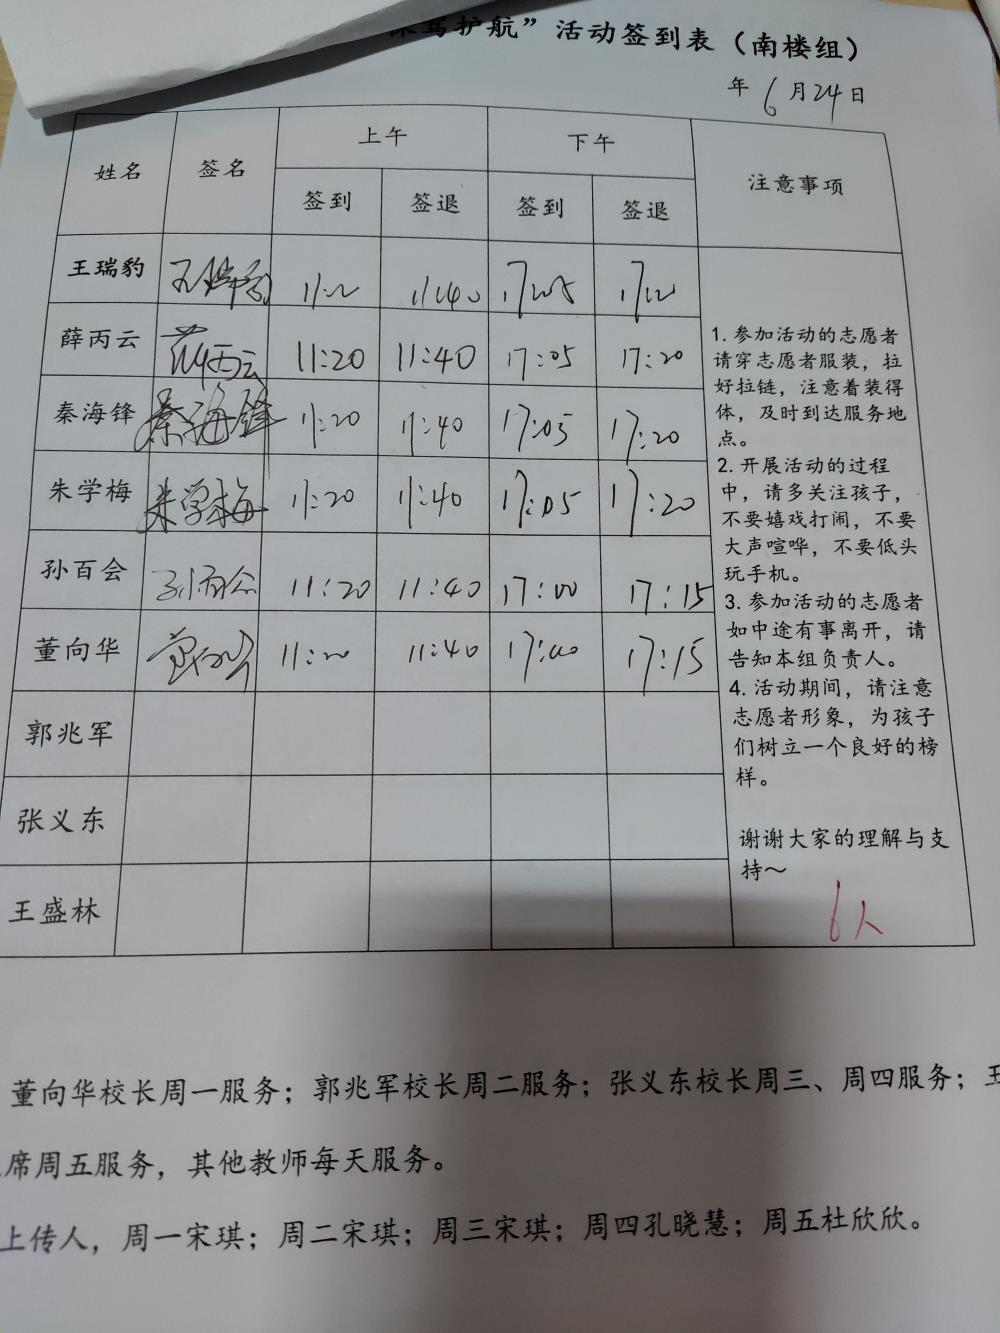 驾护航”活动签到表（南楼组）
年 6 月 24 日
姓名 签名 上午 下午 注意事项
签到 签退 签到 签退
王瑞豹 王瑞豹 11:20 11:40 17:05 17:20
薛丙云 薛丙云 11:20 11:40 17:05 17:20
秦海锋 秦海锋 11:20 11:40 17:05 17:20
朱学梅 朱学梅 11:20 11:40 17:05 17:20
孙百会 孙百会 11:20 11:40 17:00 17:15
董向华 董向华 11:20 11:40 17:00 17:15
郭兆军
张义东
王盛林
1. 参加活动的志愿者
请穿志愿者服装，拉
好拉链，注意着装得
体，及时到达服务地
点。
2. 开展活动的过程
中，请多关注孩子，
不要嬉戏打闹，不要
大声喧哗，不要低头
玩手机。
3. 参加活动的志愿者
如中途有事离开，请
告知本组负责人。
4. 活动期间，请注意
志愿者形象，为孩子
们树立一个良好的榜
样。
谢谢大家的理解与支
持～
6人
董向华校长周一服务；郭兆军校长周二服务；张义东校长周三、周四服务；王
席周五服务，其他教师每天服务。
上传人，周一宋琪；周二宋琪；周三宋琪；周四孔晓慧；周五杜欣欣。